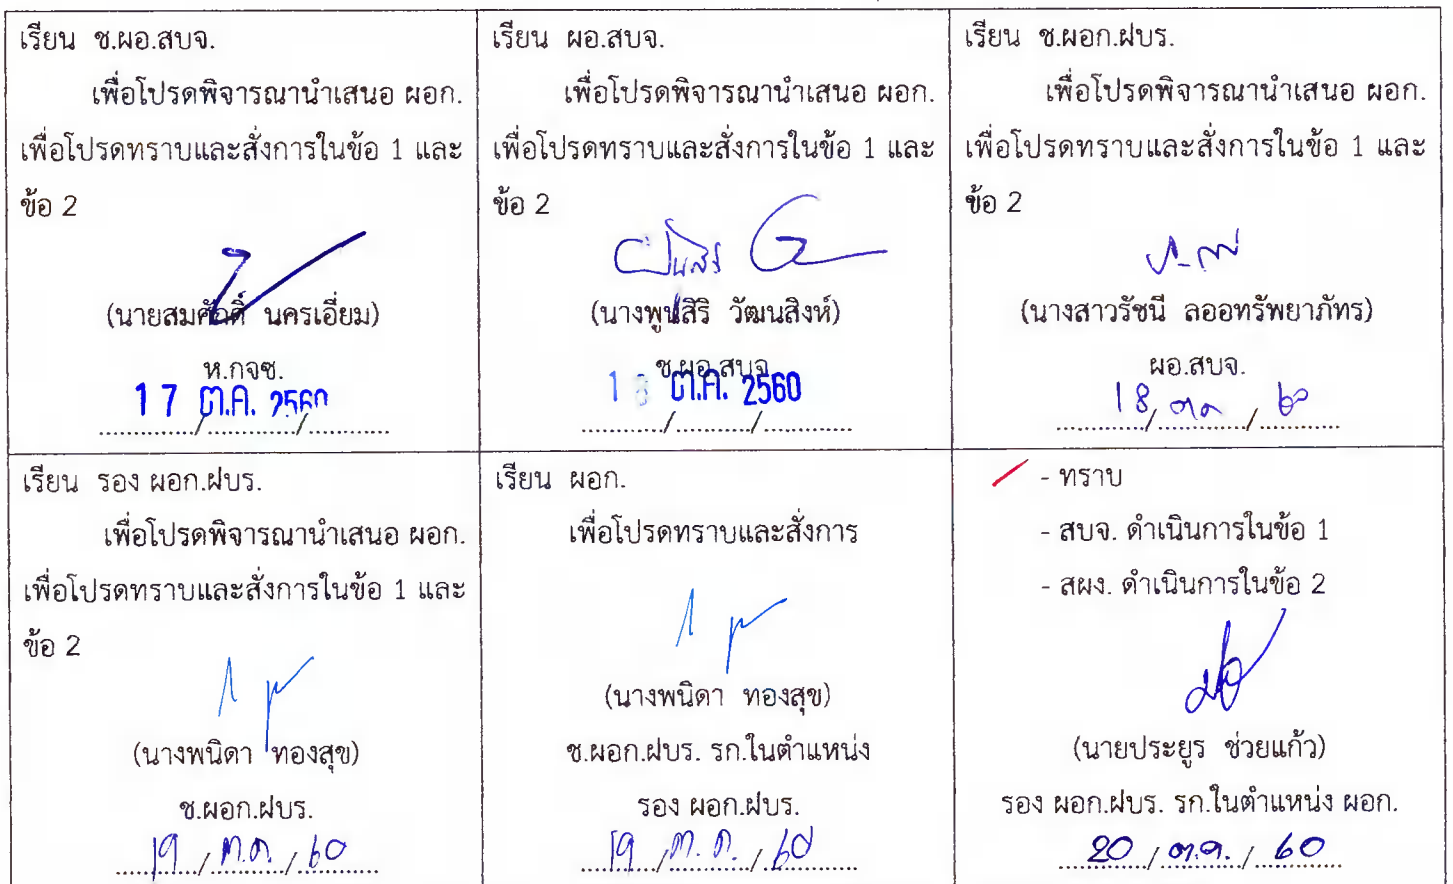 เรียน ช.ผอ.สบจ.
เพื่อโปรดพิจารณานำเสนอ ผอก.
เพื่อโปรดทราบและสั่งการในข้อ 1 และ
ข้อ 2
(นายสมศักดิ์ นครเอี่ยม)
ห.กจซ.
17 ต.ค. 2560
เรียน ผอ.สบจ.
เพื่อโปรดพิจารณานำเสนอ ผอก.
เพื่อโปรดทราบและสั่งการในข้อ 1 และ
ข้อ 2
(นางพูนสิริ วัฒนสิงห์)
ช.ผอ.สบจ
ต.ค. 2560
เรียน ช.ผอก.ฝบร.
เพื่อโปรดพิจารณานำเสนอ ผอก.
เพื่อโปรดทราบและสั่งการในข้อ 1 และ
ข้อ 2
(นางสาวรัชนี ลออทรัพยาภัทร)
ผอ.สบจ.
18 / ตค / ๖๐
เรียน รอง ผอก.ฝบร.
เพื่อโปรดพิจารณานำเสนอ ผอก.
เพื่อโปรดทราบและสั่งการในข้อ 1 และ
ข้อ 2
(นางพนิดา ทองสุข)
ช.ผอก.ฝบร.
19 / ต.ค. / 60
เรียน ผอก.
เพื่อโปรดทราบและสั่งการ
(นางพนิดา ทองสุข)
ช.ผอก.ฝบร. รก.ในตำแหน่ง
รอง ผอก.ฝบร.
19 / ต.ค. / 60
- ทราบ
- สบจ. ดำเนินการในข้อ 1
- สผง. ดำเนินการในข้อ 2
(นายประยูร ช่วยแก้ว)
รอง ผอก.ฝบร. รก.ในตำแหน่ง ผอก.
20 / ต.ค. / 60